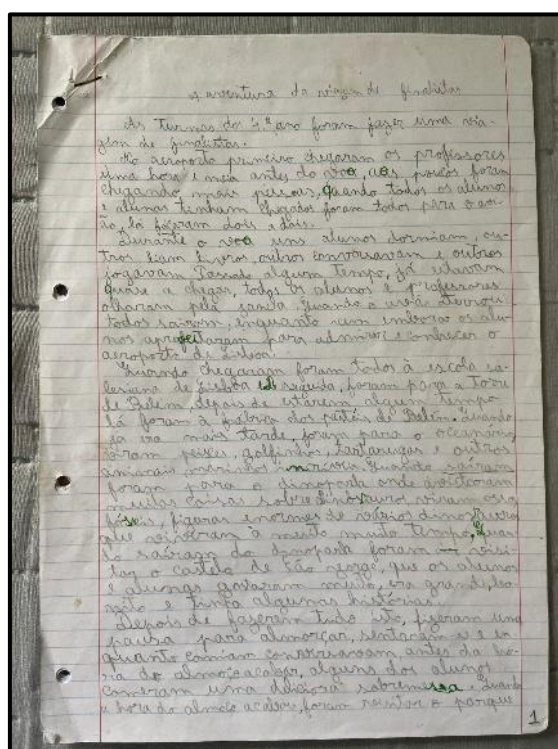 A aventura da viagem de finalistas
As turmas dos 4.º ano foram fazer uma via-
gem de finalistas.
No aeroporto primeiro chegaram os professores
uma hora e meia antes do voo, aos poucos foram
chegando mais pessoas, quando todos os alunos
e alunas tinham chegados foram todos para o avi-
ão, lá fizeram dois e dois.
Durante o voo uns alunos dormiam, ou-
tros liam livros, outros conversavam e outros
jogavam. Passado algum tempo, já estavam
quase a chegar, todos os alunos e professores
olharam pela janela. Quando o avião aterrou
todos sairom, enquanto iam embora os alu-
nos aproveitaram para admirar e conhecer o
aeroporto de Lisboa.
Quando chegaram foram todos à escola sa-
lesiana de Lisboa seguida, foram para a Torre
de Belém, depois de estarem algum tempo
lá foram à fábrica dos pastéis de Belém. Quando
já era mais tarde, foram para o oceanário,
viram peixes, golfinhos, tartarugas e outros
animais marinhos Quando saíram
foram para o dinoparta onde
muitas coisas sobre dinossauros, viram ossos
fósseis, figuras enormes de vários dinossauros
que viveram à muito muito tempo, quan-
do saíram do dinopark foram visi-
tar o castelo de são que os alunos
e alunas gostaram muito, era grande,
e tinha algumas histórias.
Depois de fazerem tudo isto, fizeram uma
pausa para almorçar, sentaram-se e en-
quanto comiam conversavam, antes da ho-
ra do almoço acabar, alguns dos alunos
comeram uma deliciosa sobremessa. Quando
a hora do almoço acabou, foram visitar o parque
1